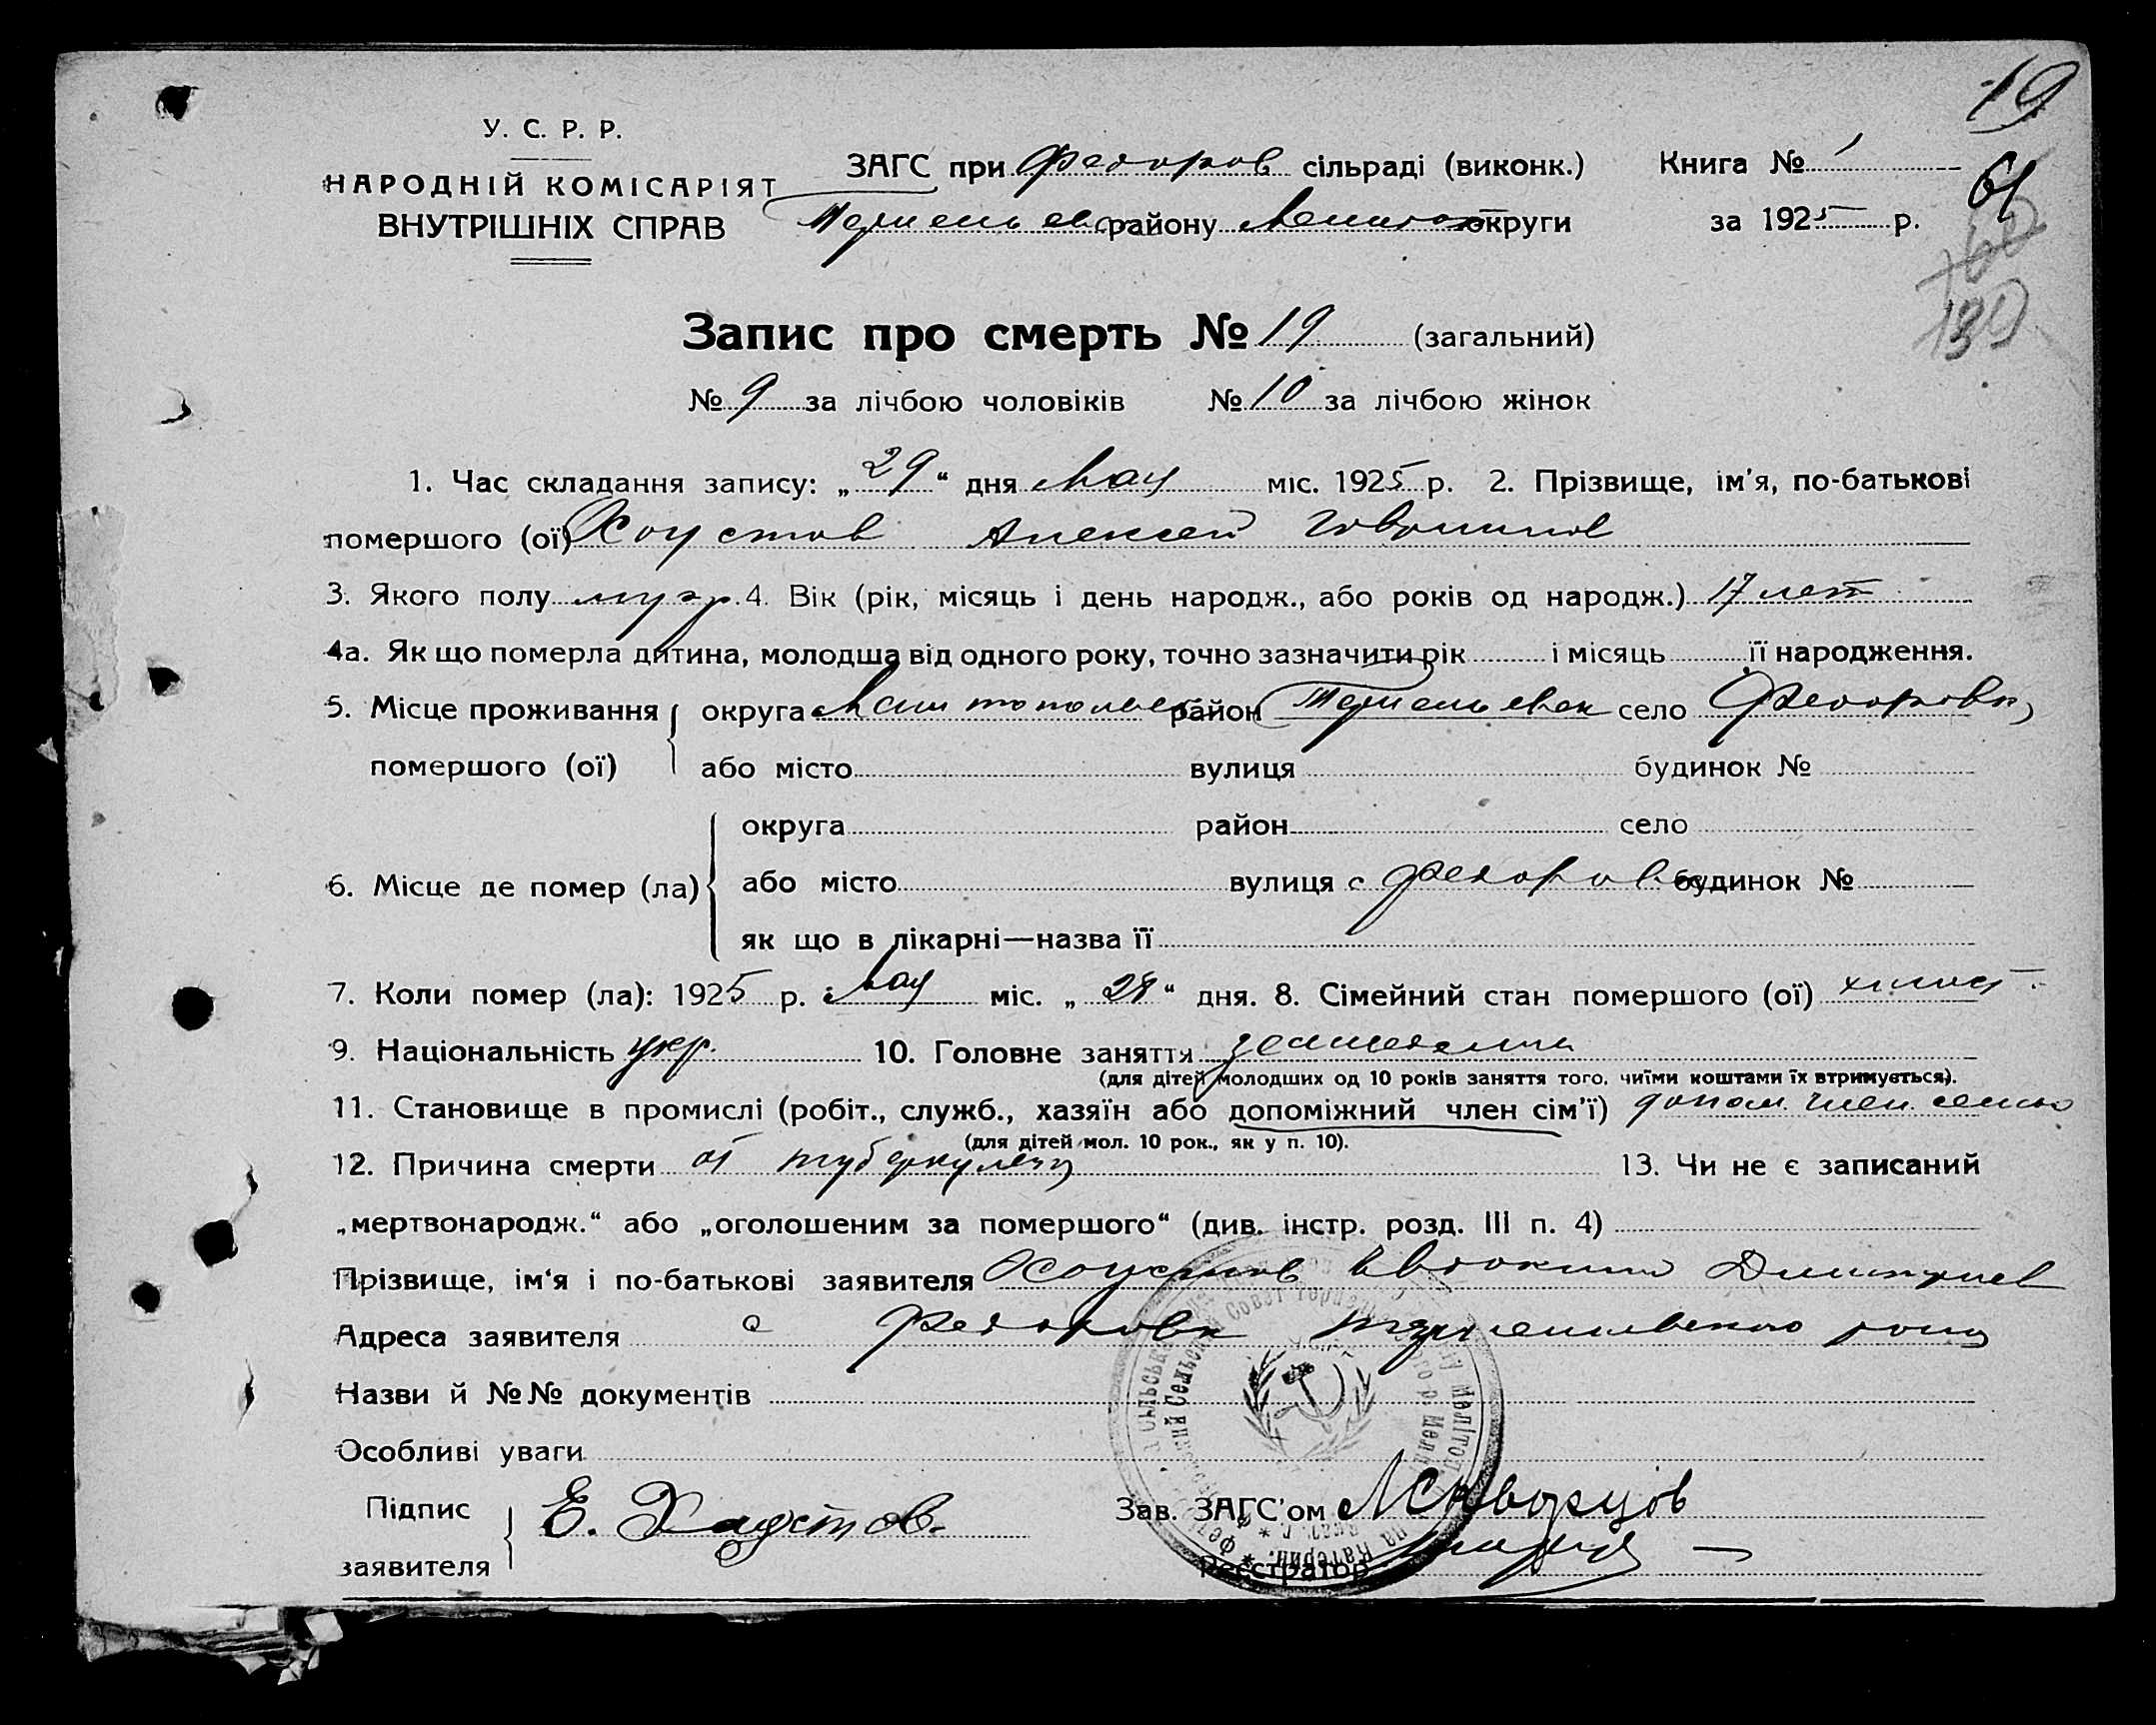 19
У. С. Р. Р.
НАРОДНІЙ КОМІСАРІЯТ
ВНУТРІШНІХ СПРАВ
ЗАГС при Федоров сільраді (виконк.)
району округи
Книга № 1
за 1925 р.
61
Запис про смерть № 19 (загальний)
№ 9 за лічбою чоловіків № 10 за лічбою жінок
1. Час складання запису: „29“ дня мая міс. 1925 р. 2. Прізвище, ім'я, по-батькові
помершого (ої) Хоустов Алексей
3. Якого полу муж. 4. Вік (рік, місяць і день народж., або років од народж.) 17 лет
4а. Як що померла дитина, молодша від одного року, точно зазначити рік і місяць її народження.
5. Місце проживання округа район село Федоровка
помершого (ої) або місто вулиця будинок №
округа район село
6. Місце де помер (ла) або місто вулиця с Федоровка будинок №
як що в лікарні—назва її
7. Коли помер (ла): 1925 р. мая міс. „28“ дня. 8. Сімейний стан помершого (ої) холост.
9. Національність укр. 10. Головне заняття
(для дітей молодших од 10 років заняття того, чиїми коштами їх втримується).
11. Становище в промислі (робіт., служб., хазяїн або допоміжний член сім'ї) допом. член семьи
(для дітей мол. 10 рок., як у п. 10).
12. Причина смерти от туберкулеза 13. Чи не є записаний
„мертвонародж.“ або „оголошеним за помершого“ (див. інстр. розд. III п. 4)
Прізвище, ім'я і по-батькові заявителя Хоустов Евдоким Дмитриев
Адреса заявителя с Федоровка
Назви й №№ документів
Особливі уваги
Підпис
заявителя
Е. Хаустов.
Зав. ЗАГС'ом
Реєстратор